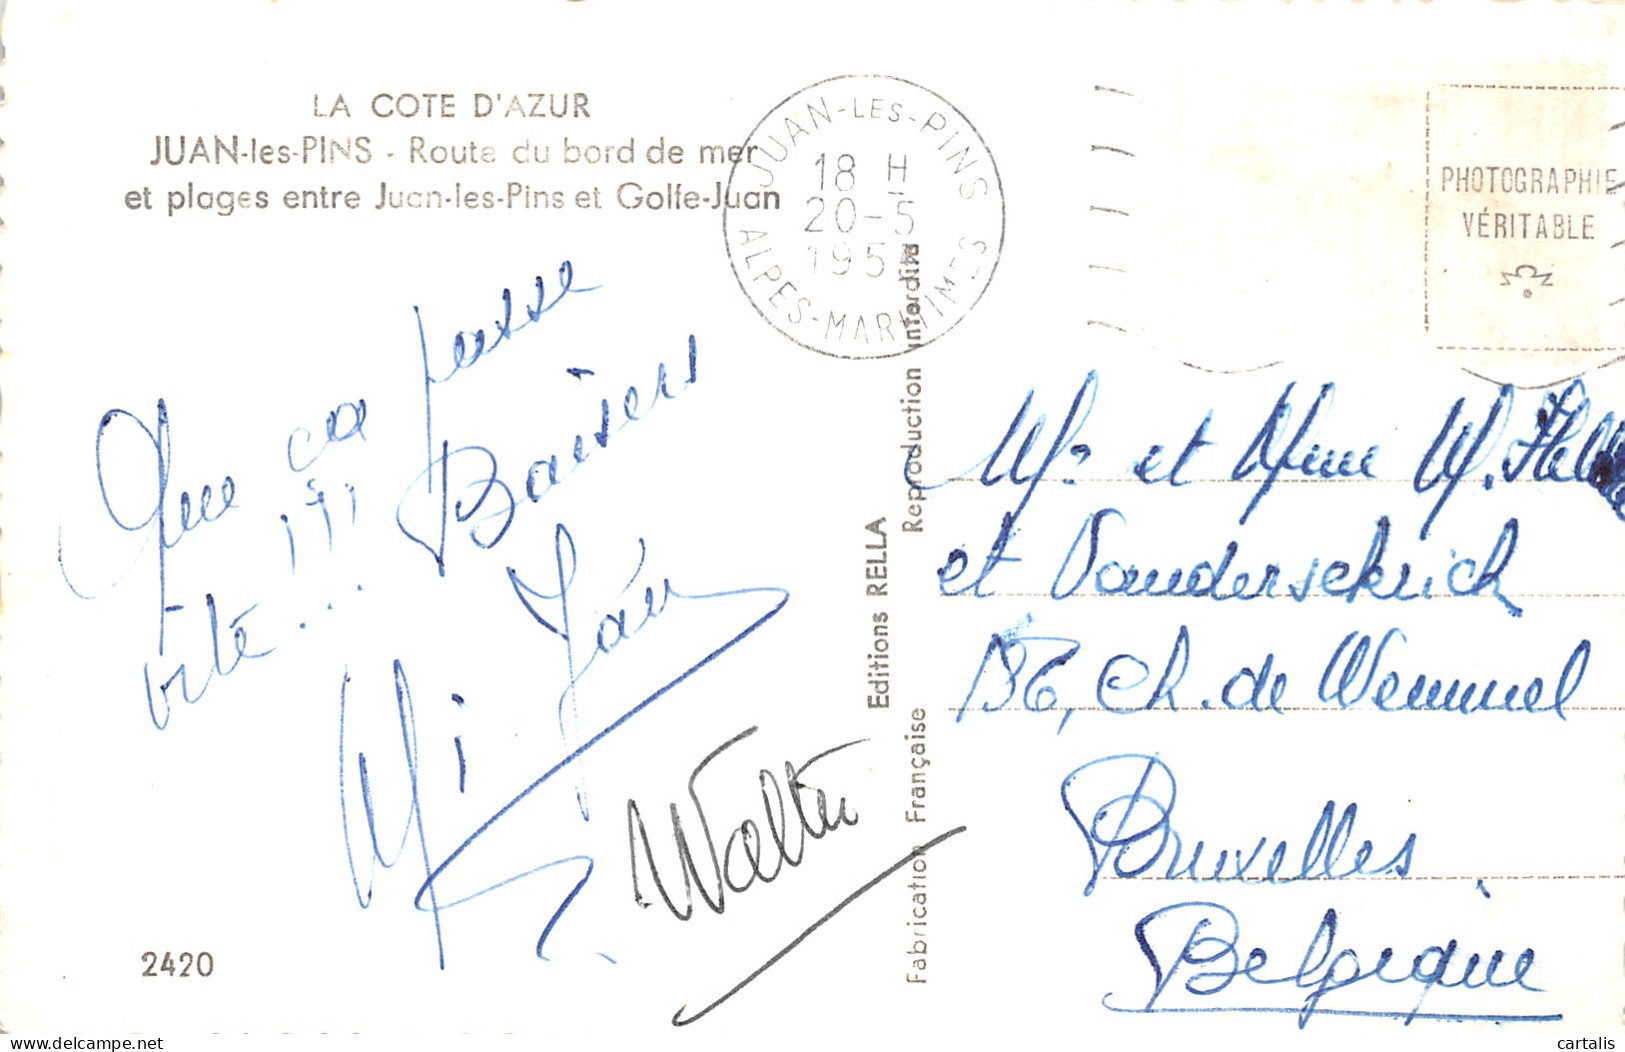 LA COTE D'AZUR
JUAN-les-PINS - Route du bord de mer
et plages entre Juan-les-Pins et Golfe-Juan
JUAN-LES-PINS
18 H
20-5
195
ALPES-MARITIMES
PHOTOGRAPHIE
VÉRITABLE
Que ça passe
vite...!!!
Baisers
Walter
2420
Editions RELLA
Reproduction interdite
Fabrication Française
Mr et Mme M.
et Vanderschrick
136, Ch. de Wemmel
Bruxelles.
Belgique
cartalis